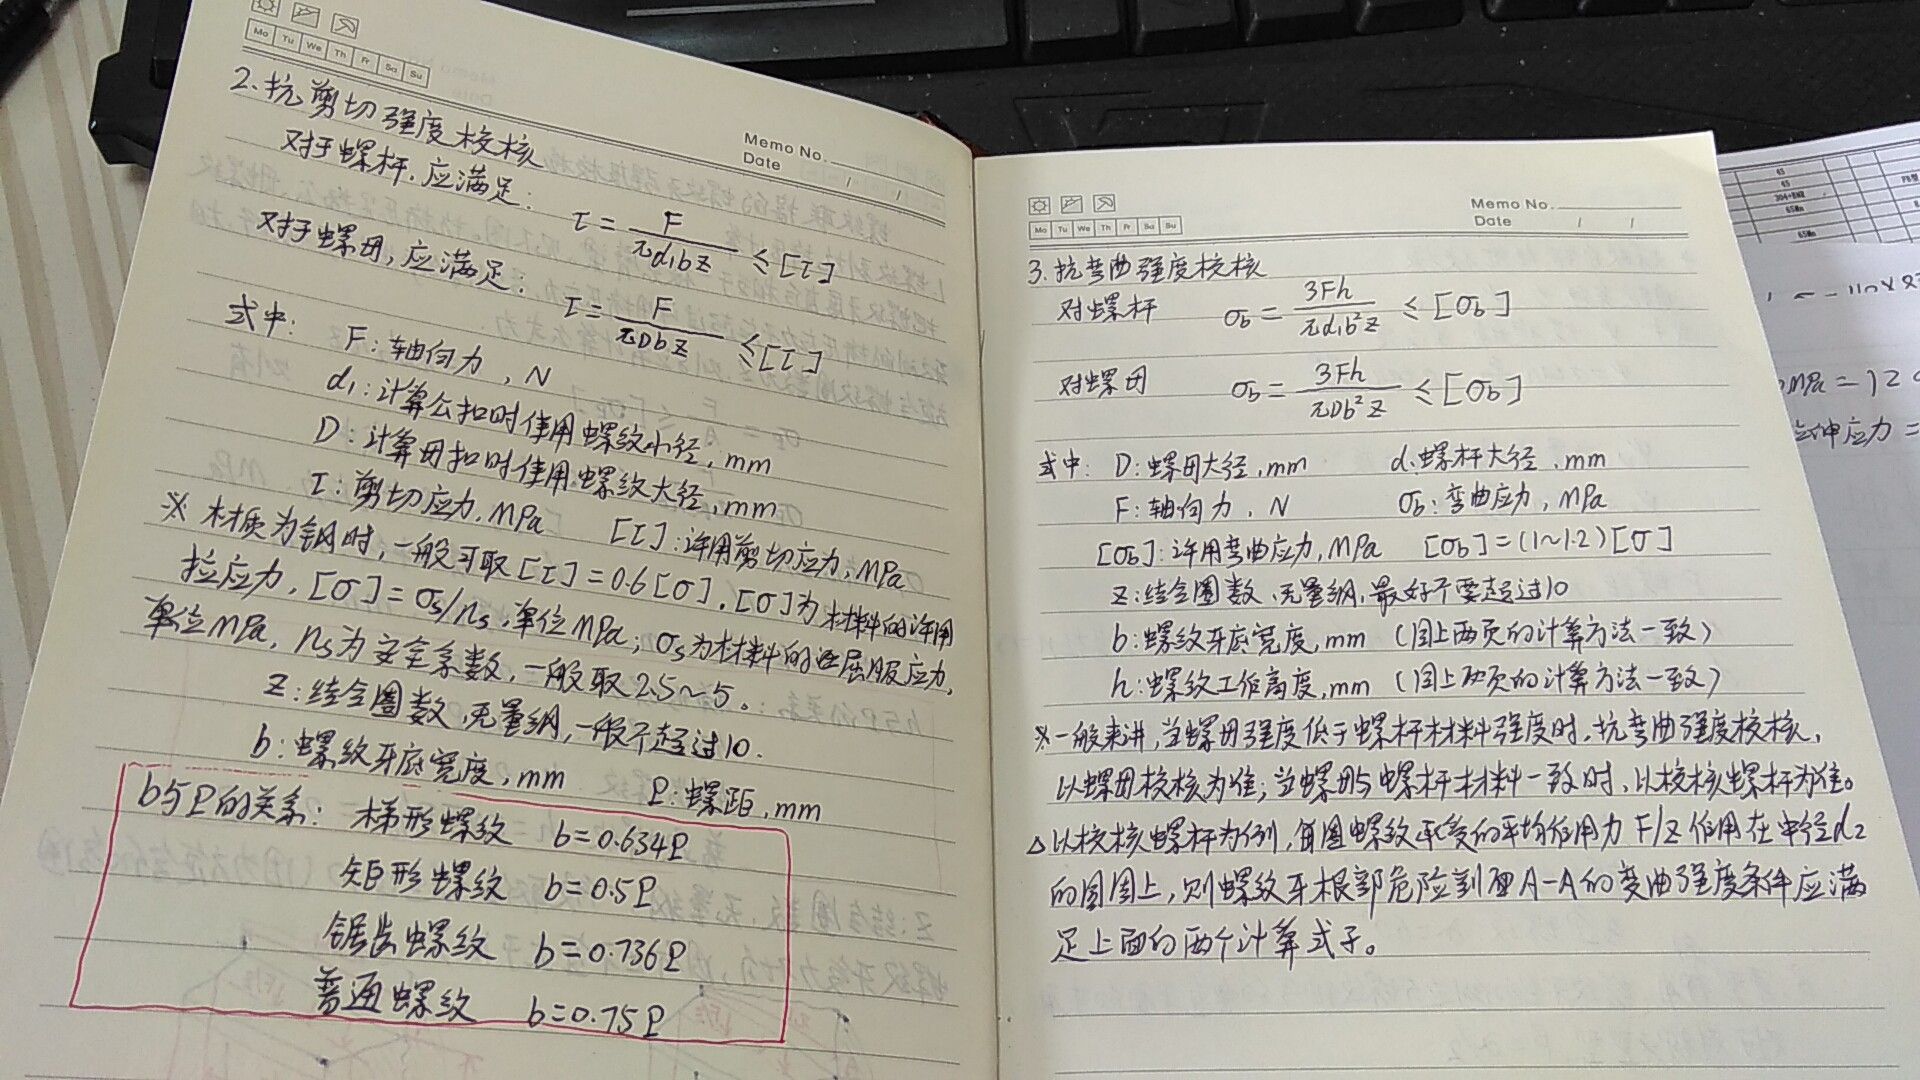 Mo Tu We Th Fr Sa Su
Memo No.
Date / /
2.抗剪切强度校核
对于螺杆,应满足:
τ = F/(πd₁bz) ≤ [τ]
对于螺母,应满足:
τ = F/(πDbz) ≤ [τ]
式中: F:轴向力, N
d₁:计算公扣时使用螺纹小径, mm
D:计算母扣时使用螺纹大径, mm
τ:剪切应力, MPa [τ]:许用剪切应力, MPa
※ 材质为钢时,一般可取[τ]=0.6[σ]. [σ]为材料的许用
拉应力, [σ]=σs/ns,单位MPa; σs为材料的屈服应力,
单位MPa, ns为安全系数,一般取2.5~5。
z:结合圈数,无量纲,一般不超过10.
b:螺纹牙底宽度, mm P:螺距, mm
b与P的关系: 梯形螺纹 b=0.634P
矩形螺纹 b=0.5P
锯齿螺纹 b=0.736P
普通螺纹 b=0.75P
Mo Tu We Th Fr Sa Su
Memo No.
Date / /
3.抗弯曲强度校核
对螺杆 σb = 3Fh/(πd₁b²z) ≤ [σb]
对螺母 σb = 3Fh/(πDb²z) ≤ [σb]
式中: D:螺母大径, mm d:螺杆大径, mm
F:轴向力, N σb:弯曲应力, MPa
[σb]:许用弯曲应力, MPa [σb]=(1~1.2)[σ]
z:结合圈数,无量纲,最好不要超过10
b:螺纹牙底宽度, mm (同上两页的计算方法一致)
h:螺纹工作高度, mm (同上两页的计算方法一致)
※一般来讲,当螺母强度低于螺杆材料强度时,抗弯曲强度校核,
以螺母校核为准;当螺母与螺杆材料一致时,以校核螺杆为准。
△以校核螺杆为例,每圈螺纹承受的平均作用力F/z作用在中径d2
的圆周上,则螺纹牙根部危险剖面A-A的弯曲强度条件应满
足上面的两个计算式子。
65
65
65Mn
65Mn
MPa=12
应力=